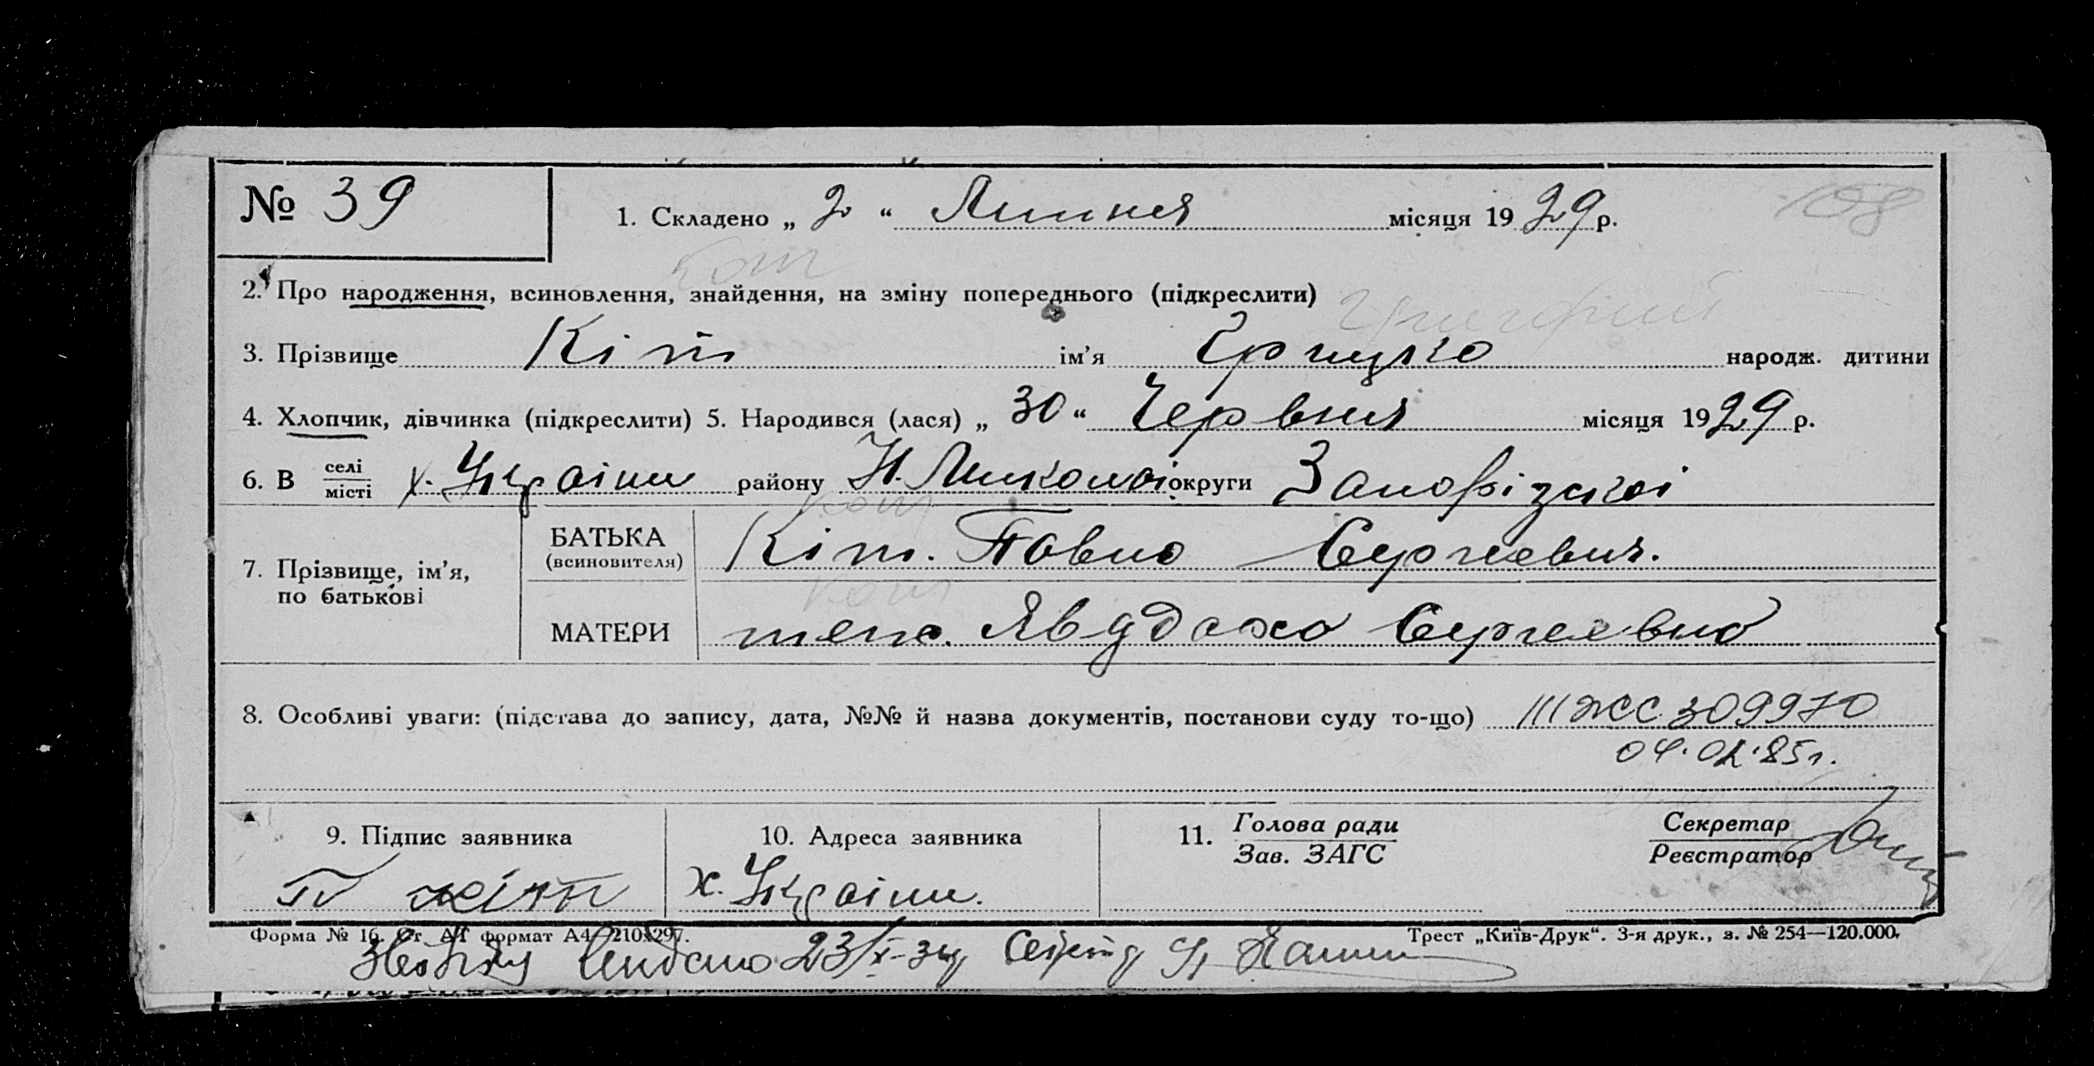 № 39
1. Складено „ 2 “ Липня місяця 1929 р. 108
Кот
2. Про народження, всиновлення, знайдення, на зміну попереднього (підкреслити)
Григорий
3. Прізвище Кіт ім’я Грицько народж. дитини
4. Хлопчик, дівчинка (підкреслити) 5. Народився (лася) „ 30 “ Червня місяця 1929 р.
6. В селі/місті х. Україна району Н. Миколаї округи Запорізької
Кот
7. Прізвище, ім’я, по батькові
БАТЬКА (всиновителя) Кіт. Павло Сергієвич.
Кот
МАТЕРИ теж. Явдоха Сергеевна
8. Особливі уваги: (підстава до запису, дата, №№ й назва документів, постанови суду то-що) III ЖС 309970
04.02.85г.
9. Підпис заявника
П Кіт
10. Адреса заявника
х. Україна.
11. Голова ради
Зав. ЗАГС
Секретар
Реєстратор
Форма № 16. Ст. А4 формат А4 210×297.
Трест „Київ-Друк“. 3-я друк., з. № 254—120.000.
23/X-